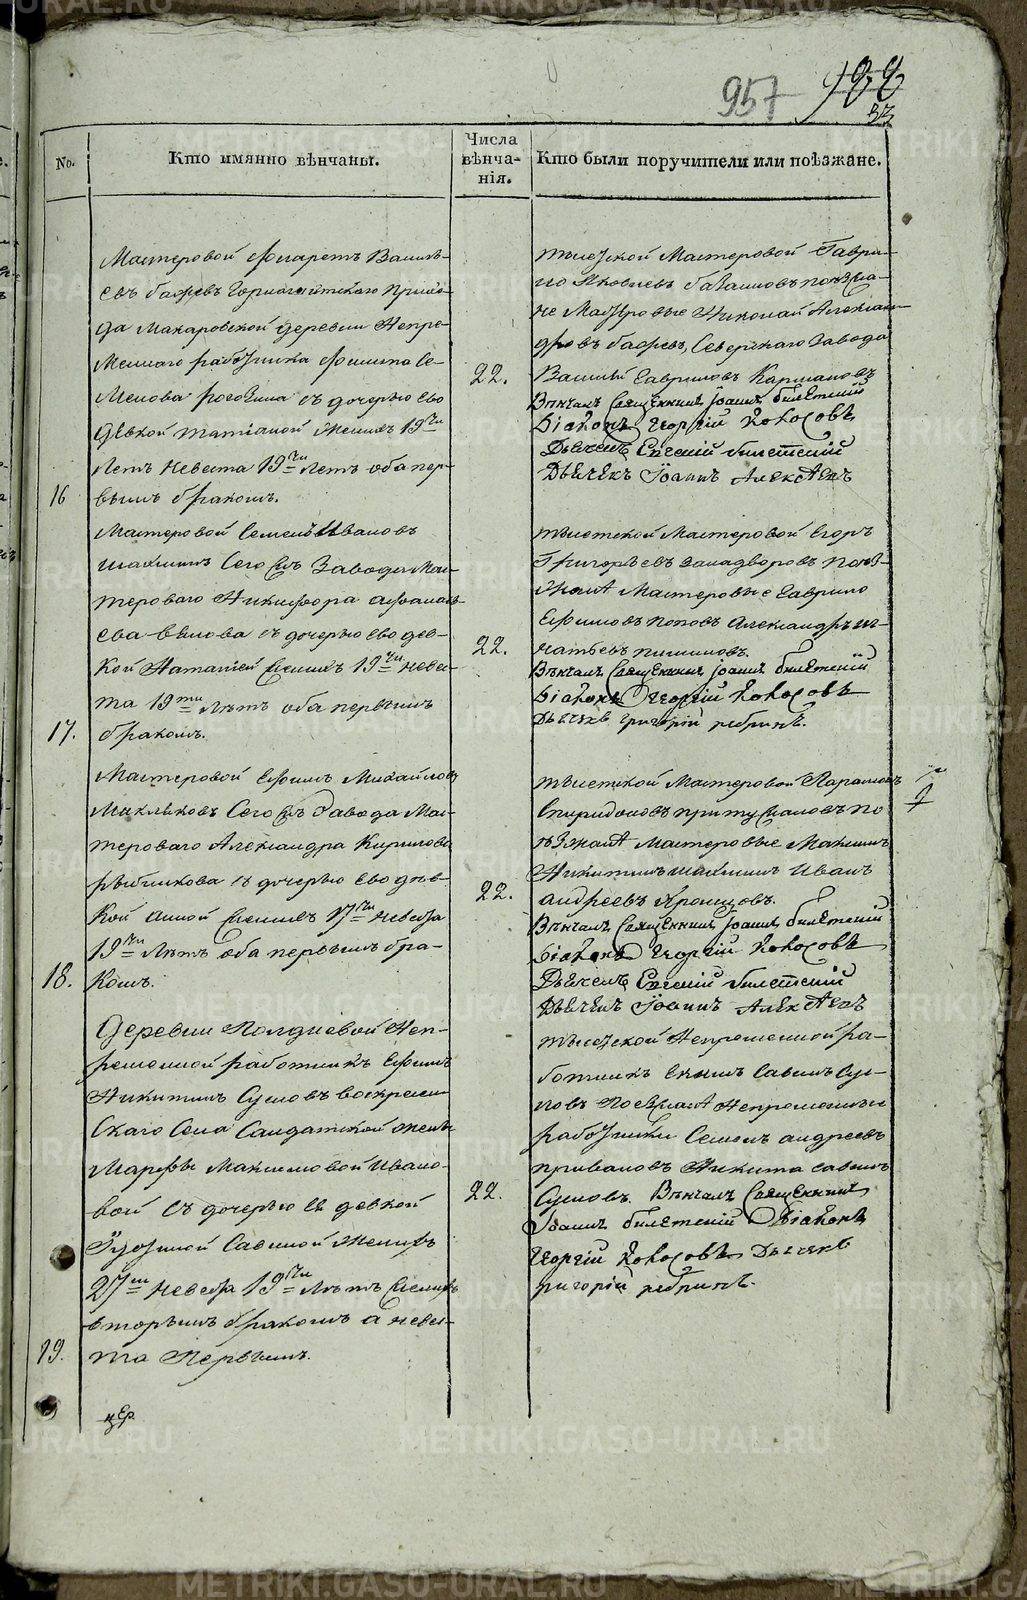 957
No.
Кто имянно вѣнчаны.
Числа
вѣнча-
нія.
Кто были поручители или поѣзжане.
Мастеровой Филаретъ Василь-
евъ Бажевъ Горнощитскаго Прихо-
да Макаровской деревни Непре-
меннаго работника Филипа Се-
менова Рогожина съ дочерью ево
девкой Татіаной Жениъ 19ти
Летъ Невеста 19ти Летъ оба пер-
16
вымъ бракомъ.
22.
Мастеровой Гаври-
ло Яковлевъ
не Мастеровые Николай Алексан-
дровъ Бажевъ, Северскаго Завода
Василий Гавриловъ
Вѣнчалъ Священникъ Іоаннъ Билетскій
Діаконъ Георгій Кокосовъ
Дьячекъ Евгеній Билетскій
Дьячекъ Іоаннъ Алексѣевъ
Мастеровой Семенъ Ивановъ
Шахминъ Сего Завода Мас-
тероваго Никифора Афанась-
ева Белова съ дочерью ево дев-
кой Наталіей Женихъ 19ти Невес-
та 19ти Лѣтъ оба первымъ
17.
бракомъ.
22.
Мастеровой Егоръ
Григорьевъ Западворовъ поѣз-
жана Мастеровые Гаврило
Ефимовъ Поповъ Александръ Иг-
натьевъ
Вѣнчалъ Священникъ Іоаннъ Билетскій
Діаконъ Георгій Кокосовъ
Дьячекъ Григорій Ребринъ.
Мастеровой Ефимъ Михайловъ
Сего Завода Мас-
тероваго Александра Кирилова
Рыбникова съ дочерью ево дѣв-
кой Анной Женихъ 17ти Невеста
19ти Лѣтъ оба первымъ бра-
18.
комъ.
22.
Мастеровой
Спиридоновъ по-
ѣзжана Мастеровые Максимъ
Никитинъ Шахминъ Иванъ
Андреевъ Храмцовъ.
Вѣнчалъ Священникъ Іоаннъ Билетскій
Діаконъ Георгій Кокосовъ
Дьячекъ Евгеній Билетскій
Дьячекъ Іоаннъ Алексѣевъ
Деревни Полдневой Неп-
ременной работникъ Ефимъ
Никитинъ Сусловъ Воскресен-
скаго Села Салдатской жены
Марфы Максимовой Ивано-
вой съ дочерью ея девкой
Савиной Женихъ
27ми Невеста 19ти Лѣтъ Женихъ
вторымъ бракомъ а невес-
19.
та Первымъ.
22.
Непременной ра-
ботникъ Савинъ Сус-
ловъ Поезжана Непременные
работники Семенъ Андреевъ
Приваловъ Никита Савинъ
Сусловъ. Вѣнчалъ Священникъ
Іоаннъ Билетскій Діаконъ
Георгій Кокосовъ Дьячекъ
Григорій Ребринъ.
METRIKI.GASO-URAL.RU